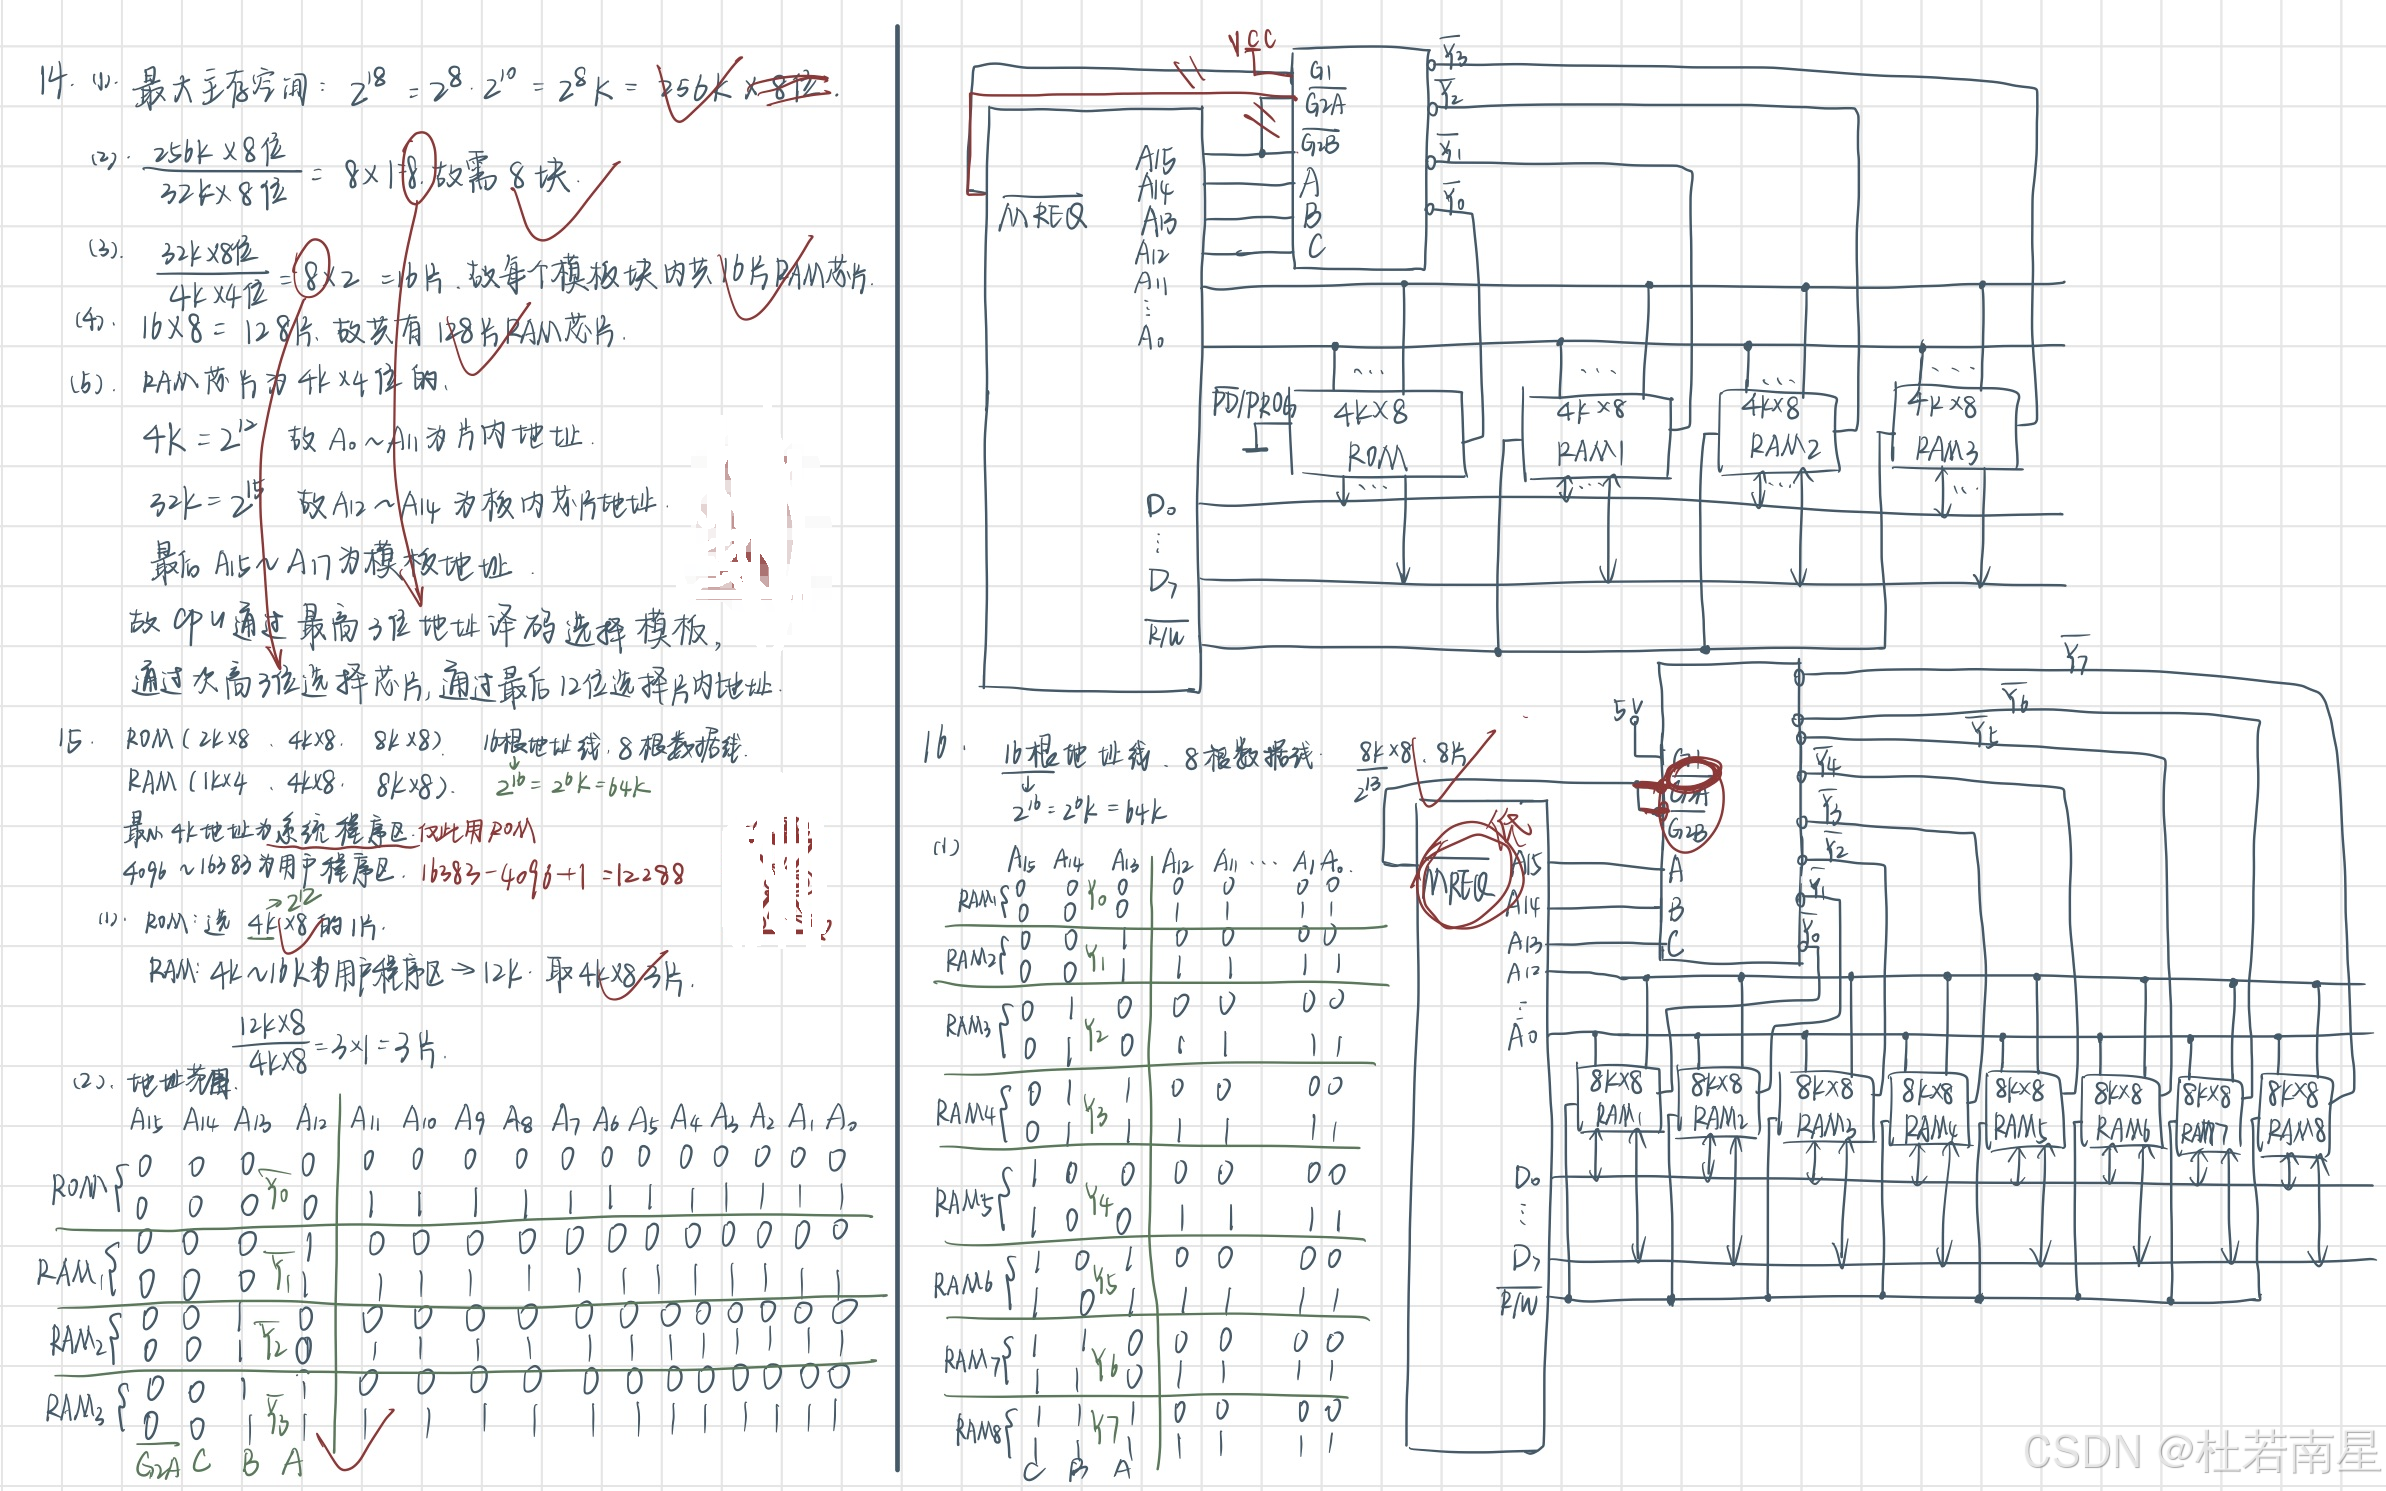 14. (1). 最大主存空间: 2^18 = 2^8 · 2^10 = 2^8 K = 256K × 8位.
(2). 256K × 8位 / 32K × 8位 = 8 × 1 = 8. 故需 8 块.
(3). 32K×8位 / 4K×4位 = 8 × 2 = 16片. 故每个模板块内共16片RAM芯片.
(4). 16 × 8 = 128片. 故共有 128片RAM芯片.
(5). RAM芯片为 4K×4位的,
4K = 2^12 故 A0 ~ A11 为片内地址.
32K = 2^15 故A12 ~ A14 为板内芯片地址.
最后 A15 ~ A17 为模板地址.
故CPU通过最高3位地址译码选择模板,
通过次高3位选择芯片, 通过最后12位选择片内地址.
15. ROM (2K×8、4K×8、8K×8). 16根地址线, 8根数据线.
RAM (1K×4、4K×8、8K×8). 2^16 = 2^6K = 64K
最小 4K地址为系统程序区. 仅此用ROM
4096 ~ 16383为用户程序区. 16383-4096+1 = 12288
→2^12
(1). ROM: 选 4K×8 的 1片.
RAM: 4K~16K为用户程序区 → 12K. 取 4K×8 3片.
12K×8 / 4K×8 = 3×1 = 3片.
(2). 地址范围.
A15 A14 A13 A12 A11 A10 A9 A8 A7 A6 A5 A4 A3 A2 A1 A0
ROM { 0 0 0 0 0 0 0 0 0 0 0 0 0 0 0 0
Y0
0 0 0 0 1 1 1 1 1 1 1 1 1 1 1 1
RAM1 { 0 0 0 1 0 0 0 0 0 0 0 0 0 0 0 0
Y1
0 0 0 1 1 1 1 1 1 1 1 1 1 1 1 1
RAM2 { 0 0 1 0 0 0 0 0 0 0 0 0 0 0 0 0
Y2
0 0 1 0 1 1 1 1 1 1 1 1 1 1 1 1
RAM3 { 0 0 1 1 0 0 0 0 0 0 0 0 0 0 0 0
Y3
0 0 1 1 1 1 1 1 1 1 1 1 1 1 1 1
G2A C B A
VCC
G1
G2A
G2B
A
B
C
Y3
Y2
Y1
Y0
MREQ
A15
A14
A13
A12
A11
⋮
A0
PD/PROG
4K×8
ROM
4K×8
RAM1
4K×8
RAM2
4K×8
RAM3
D0
⋮
D7
R/W
16. 16根地址线、8根数据线. 8K×8, 8片
2^16 = 2^6K = 64K
2^13
(1)
A15 A14 A13 A12 A11 ··· A1 A0.
RAM1 { 0 0 0 0 0 0 0
Y0
0 0 0 1 1 1 1
RAM2 { 0 0 1 0 0 0 0
Y1
0 0 1 1 1 1 1
RAM3 { 0 1 0 0 0 0 0
Y2
0 1 0 1 1 1 1
RAM4 { 0 1 1 0 0 0 0
Y3
0 1 1 1 1 1 1
RAM5 { 1 0 0 0 0 0 0
Y4
1 0 0 1 1 1 1
RAM6 { 1 0 1 0 0 0 0
Y5
1 0 1 1 1 1 1
RAM7 { 1 1 0 0 0 0 0
Y6
1 1 0 1 1 1 1
RAM8 { 1 1 1 0 0 0 0
Y7
1 1 1 1 1 1 1
C B A
5V
G1
G2A
G2B
A
B
C
Y7
Y6
Y5
Y4
Y3
Y2
Y1
Y0
低
MREQ
A15
A14
A13
A12
⋮
A0
8K×8
RAM1
8K×8
RAM2
8K×8
RAM3
8K×8
RAM4
8K×8
RAM5
8K×8
RAM6
8K×8
RAM7
8K×8
RAM8
D0
⋮
D7
R/W
CSDN @杜若南星